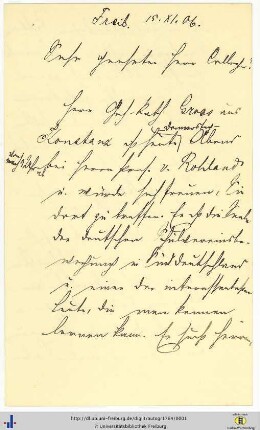 Freib. 15. XI. 06.
Sehr geehrter Herr College!
Herr Geh. Rath Groos aus
Konstanz ist heute Abend
Donnerstag
bei Herrn Prof. v. Rohland
u. würde sich freuen, Sie
dort zu treffen. Er ist die Seele
der deutschen
in Süddeutschland
u. einer der interessantesten
Leute, die man kennen
lernen kann. Er sucht
http://dl.ub.uni-freiburg.de/diglit/autogr1784/0001
© Universitätsbibliothek Freiburg